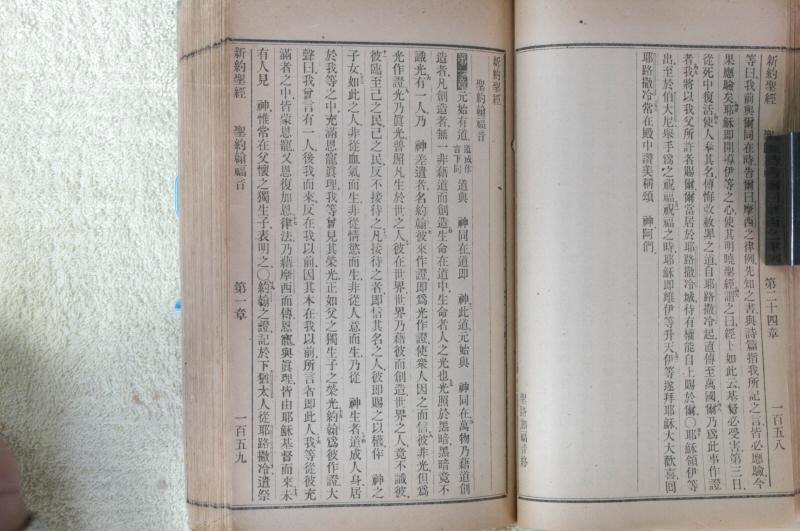 新約聖經 第二十四章 一百五八
等曰我前與爾同在時告爾曰摩西之律例先知之書與詩篇指我所記之言皆必應驗今
果應驗矣耶穌即開導伊等之心使其明曉聖經謂之曰經上如此云基督必受害第三日
從死中復活使人奉其名傳悔改赦罪之道自耶路撒冷起直傳至萬國爾乃爲此事作證
者我將以我父所許者賜爾爾當居於耶路撒冷城待有權能自上賜於爾〇耶穌領伊等
出至於伯大尼舉手爲之祝福祝福之時耶穌即離伊等升天伊等遂拜耶穌大大歡喜囘
耶路撒冷常在殿中讚美稱頌 神阿們
新約聖經
聖約翰福音
第一章元始有道道或作言下同道與 神同在道即 神此道元始與 神同在萬物乃藉道創
造者凡創造者無一非藉道而創造生命在道中生命者人之光也光照於黑暗黑暗竟不
識光有一人乃 神差遣者名約翰彼來作證即爲光作證使衆人因之而信彼非光但爲
光作證光乃眞光普照凡生於世之人彼在世界世界乃藉彼而創造世界之人竟不識彼
彼臨至己之民己之民反不接待之凡接待之者即信其名之人彼即賜之以權俾 神之
子女如此之人非從血氣而生非從情慾而生非從人意而生乃從 神生者道成人身居
於我等之中充滿恩寵眞理我等曾見其榮光正如父之獨生子之榮光約翰爲彼作證大
聲曰我曾言有一人後我而來反在我以前因其本在我以前所言者即此人我等從彼充
滿者之中皆蒙恩寵又恩復加恩律法乃藉摩西而傳恩寵與眞理皆由耶穌基督而來未
有人見 神惟常在父懷之獨生子表明之〇約翰之證記於下猶太人從耶路撒冷遣祭
新約聖經 聖約翰福音 第一章 一百五九